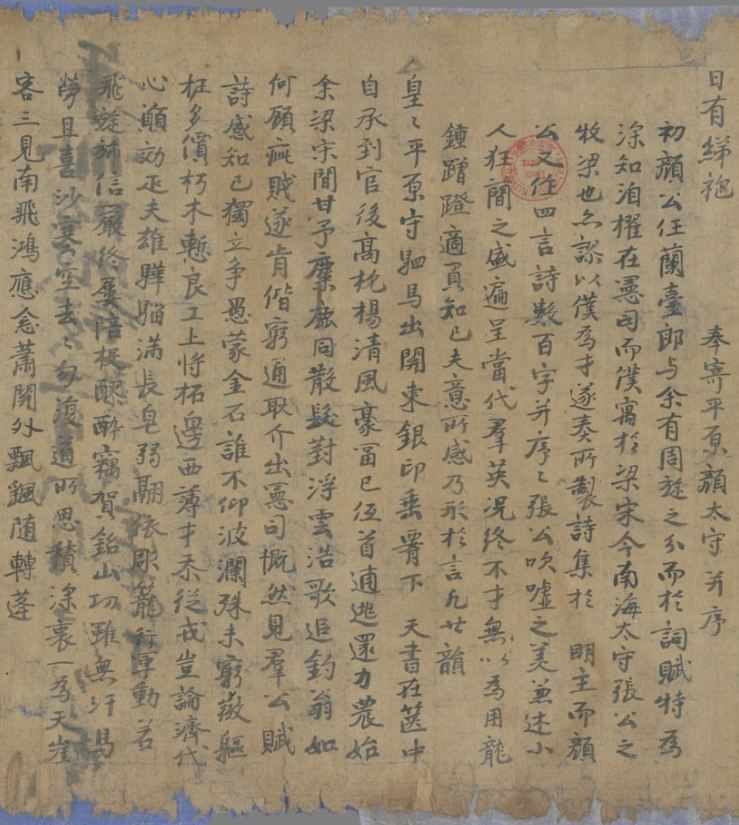 日有綈袍　奉寄平原顏太守并序
初顏公任蘭臺郎与余有周旋之分而於詞賦特為
深知洎擢在憲司而僕寓於梁宋今南海太守張公之
牧梁也亦謬以僕為才遂奏所製詩集於　明主而顏
公又作四言詩數百字并序々張公吹噓之美兼述小
人狂簡之盛遍呈當代羣英況終不才無以為用龍
鍾蹭蹬適負知已夫意所感乃形於言凡廿韻
皇々平原守駟馬出開東銀印垂膺下　天書在篋中
自承到官後高枕楊清風豪冨已伍首逋逃還力農始
余梁宋間甘予麋鹿同散髮對浮雲浩歌追釣翁如
何顧疵賤遂肯偕窮通耿介出憲司慨然見羣公賦
詩感知已獨立爭愚蒙金石誰不仰波瀾殊未窮微軀
枉多價朽木慙良工上將拓邊西薄才忝從戎豈論濟代
心願効疋夫雄驊騮滿長皂弱翮依彫籠行軍動若
飛旋旆信嚴終屢陪投醪醉竊賀銘山功雖無汗馬
勞且喜沙塞空去々勿復道所思積深衷一為天崖
客三見南飛鴻應念蕭關外飄颻随轉蓬